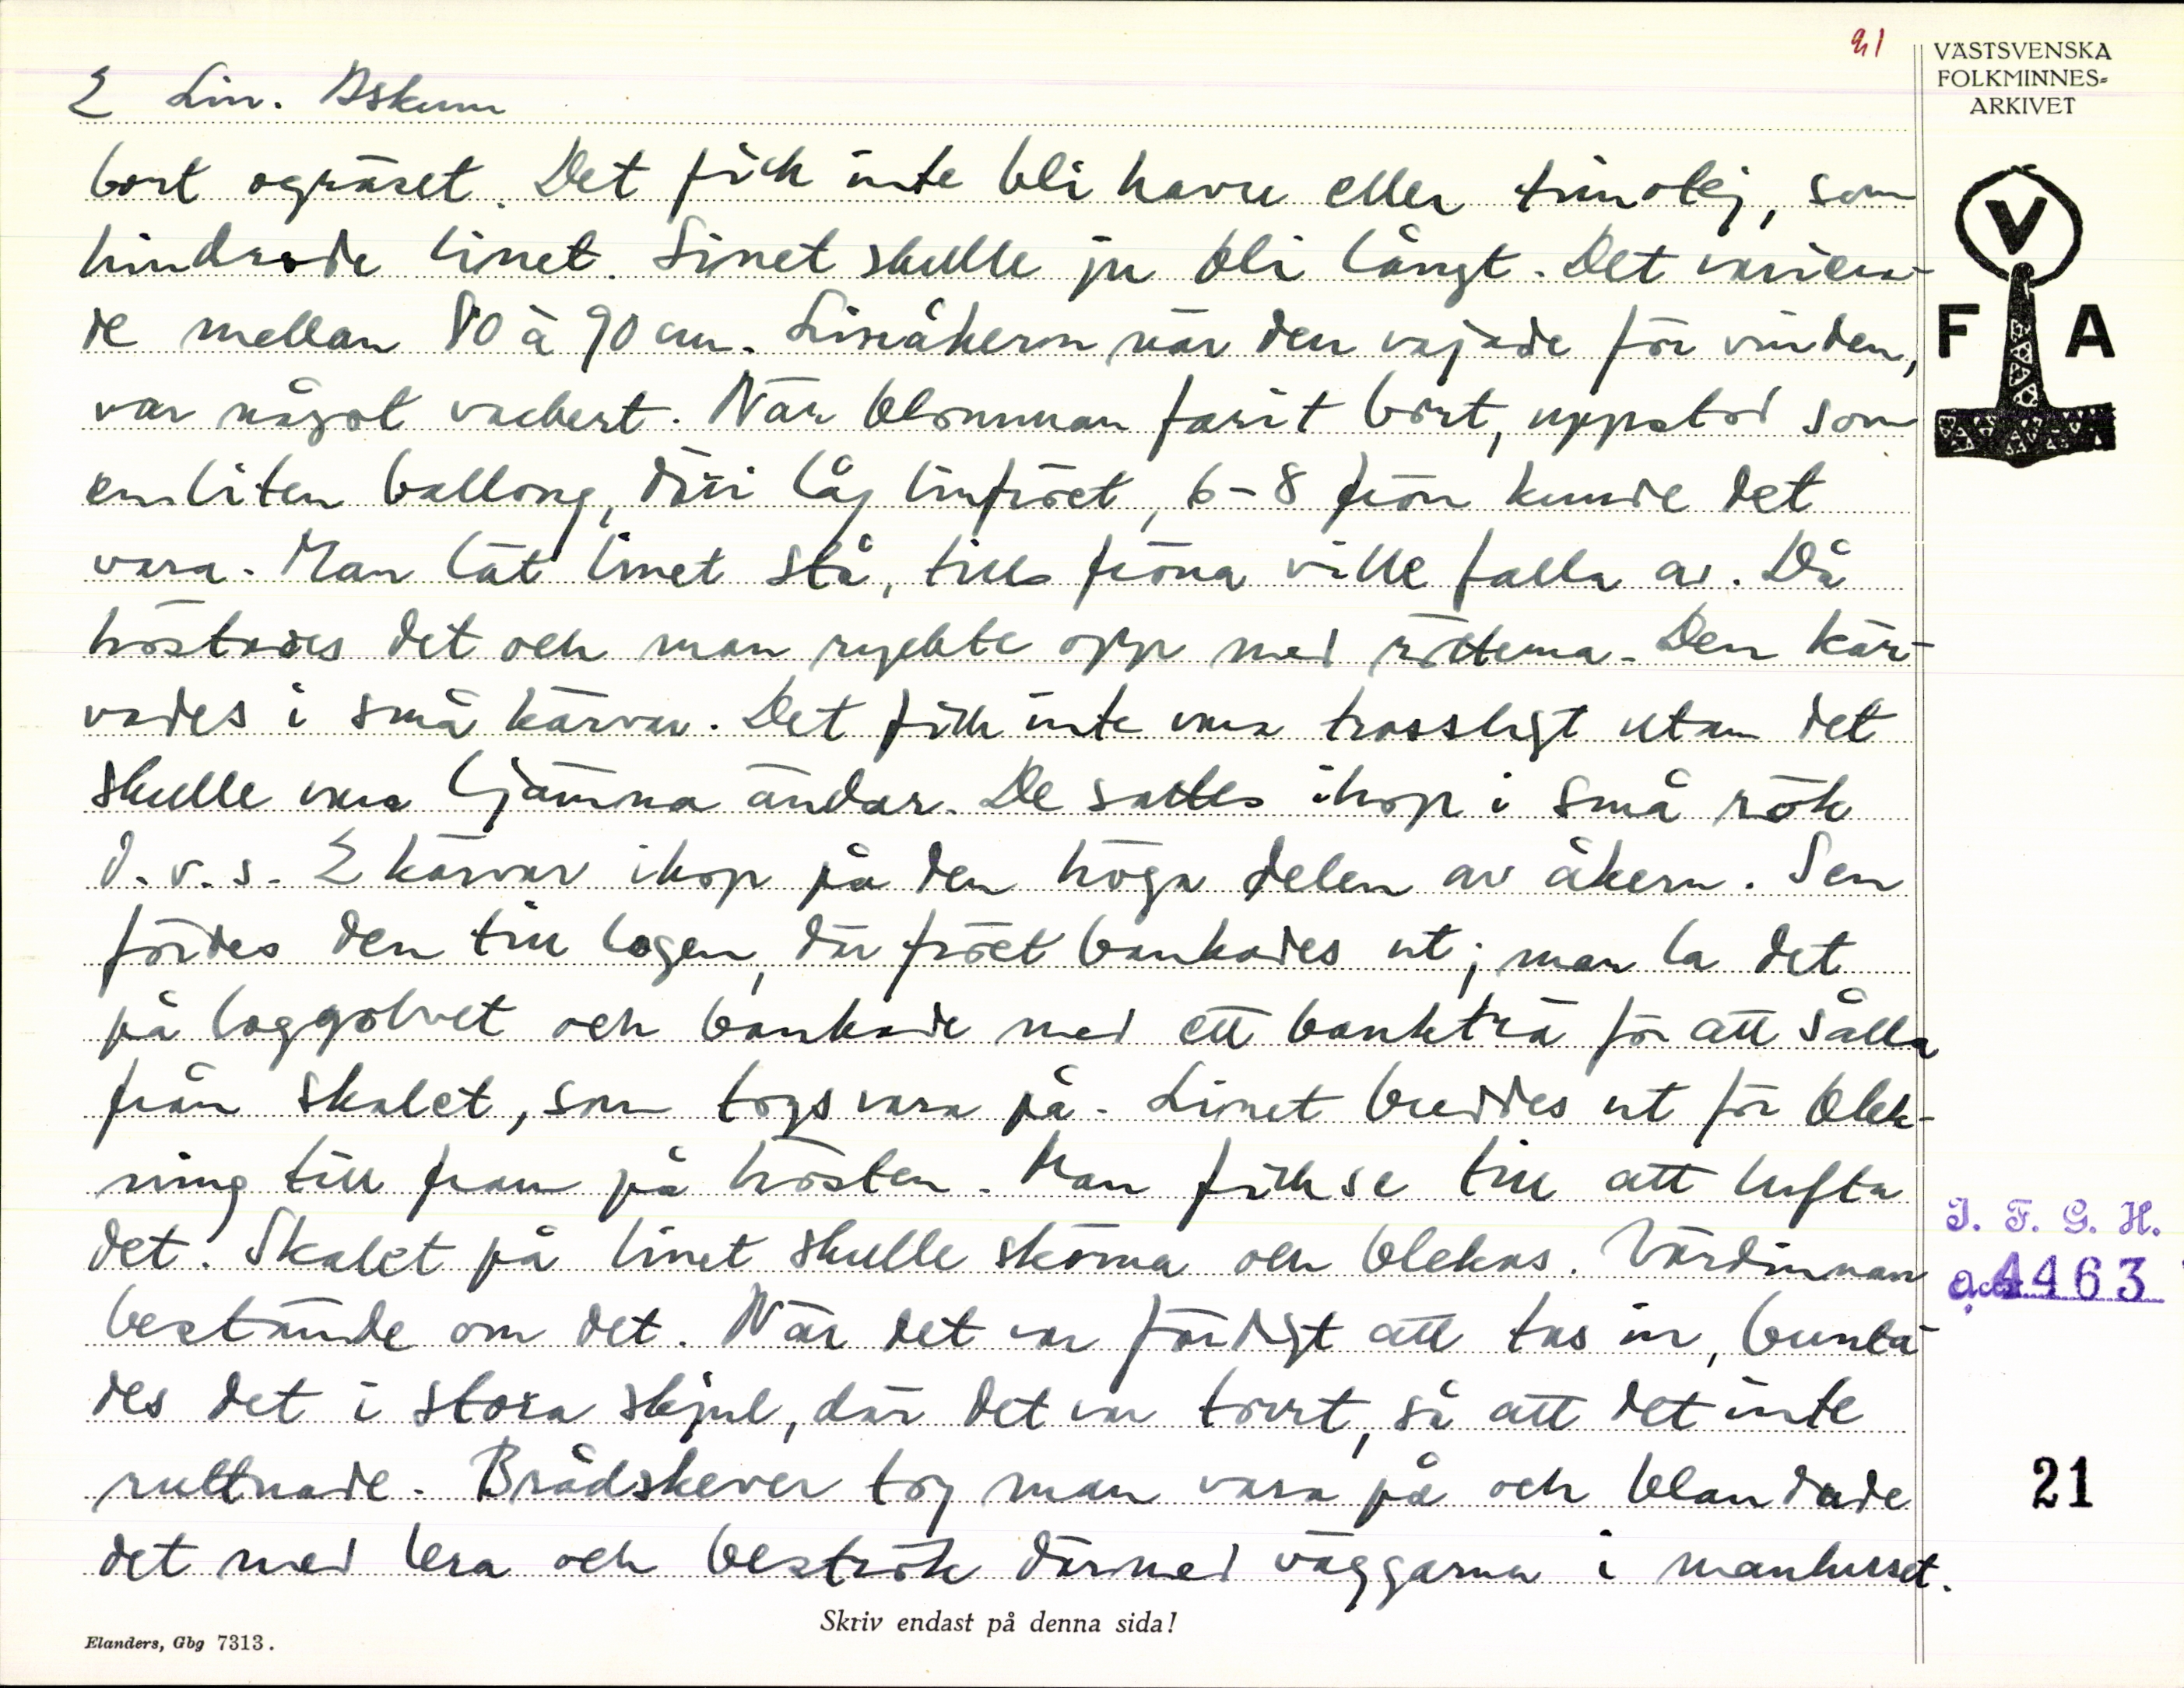 91
VÄSTSVENSKA
FOLKMINNES-
ARKIVET
V
F A
2 Lin. Askum
bort ogräset. Det fick inte bli havre eller timotej, som
hindrade linet. Linet skulle ju bli långt. Det variera-
de mellan 80 à 90 cm. Linåkern när den vajade för vinden,
var något vackert. När blomman farit bort, uppstod som
en liten ballong, däri låg linfröet, 6-8 frön kunde det
vara. Man lät linet stå, tills fröna ville falla av. Då
höstades det och man ryckte opp med rötterna. Den kär-
vades i små kärvar. Det fick inte vara trassligt utan det
skulle vara ljämna ändar. De sattes ihop i små rök
d.v.s. 2 kärvar ihop på den höga delen av åkern. Sen
fördes den till logen, där fröet bankades ut; man la det
på loggolvet och bankade med ett bankträ för att sålla
från skalet, som togs vara på. Linet breddes ut för blek-
ning till fram på hösten. Man fick se till att lufta
det. Skalet på linet skulle sköma och blekas. Värdinnan
bestämde om det. När det var färdigt att tas in, bunta-
des det i stora skjul, där det var torrt, så att det inte
ruttnade. Brådskever tog man vara på och blandade
det med lera och beströk därmed väggarna i manhuset.
I. F. G. H.
Acc 4463
21
Skriv endast på denna sida!
Elanders, Gbg 7313.